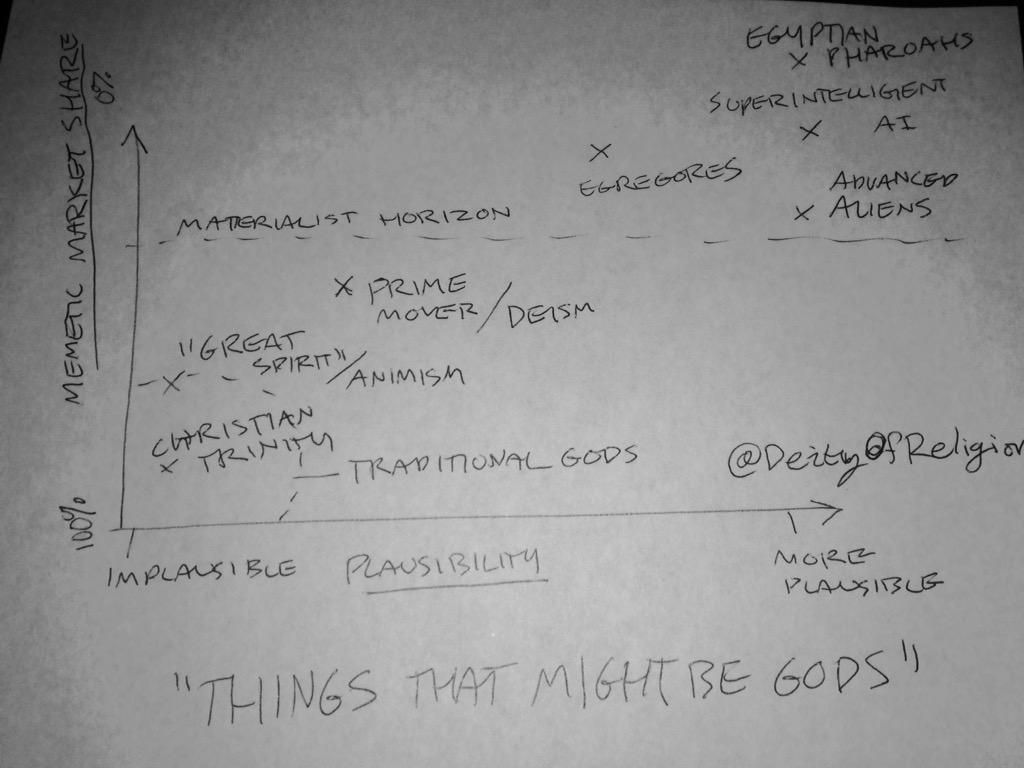 MEMETIC MARKET SHARE
0%
100%
EGYPTIAN
X PHAROAHS
SUPERINTELLIGENT
X AI
X
EGREGORES
ADVANCED
X ALIENS
MATERIALIST HORIZON
X PRIME
MOVER/DEISM
"GREAT
SPIRIT"/ANIMISM
X
CHRISTIAN
X TRINITY
TRADITIONAL GODS
@DeityOfReligion
IMPLAUSIBLE
PLAUSIBILITY
MORE
PLAUSIBLE
"THINGS THAT MIGHT BE GODS"